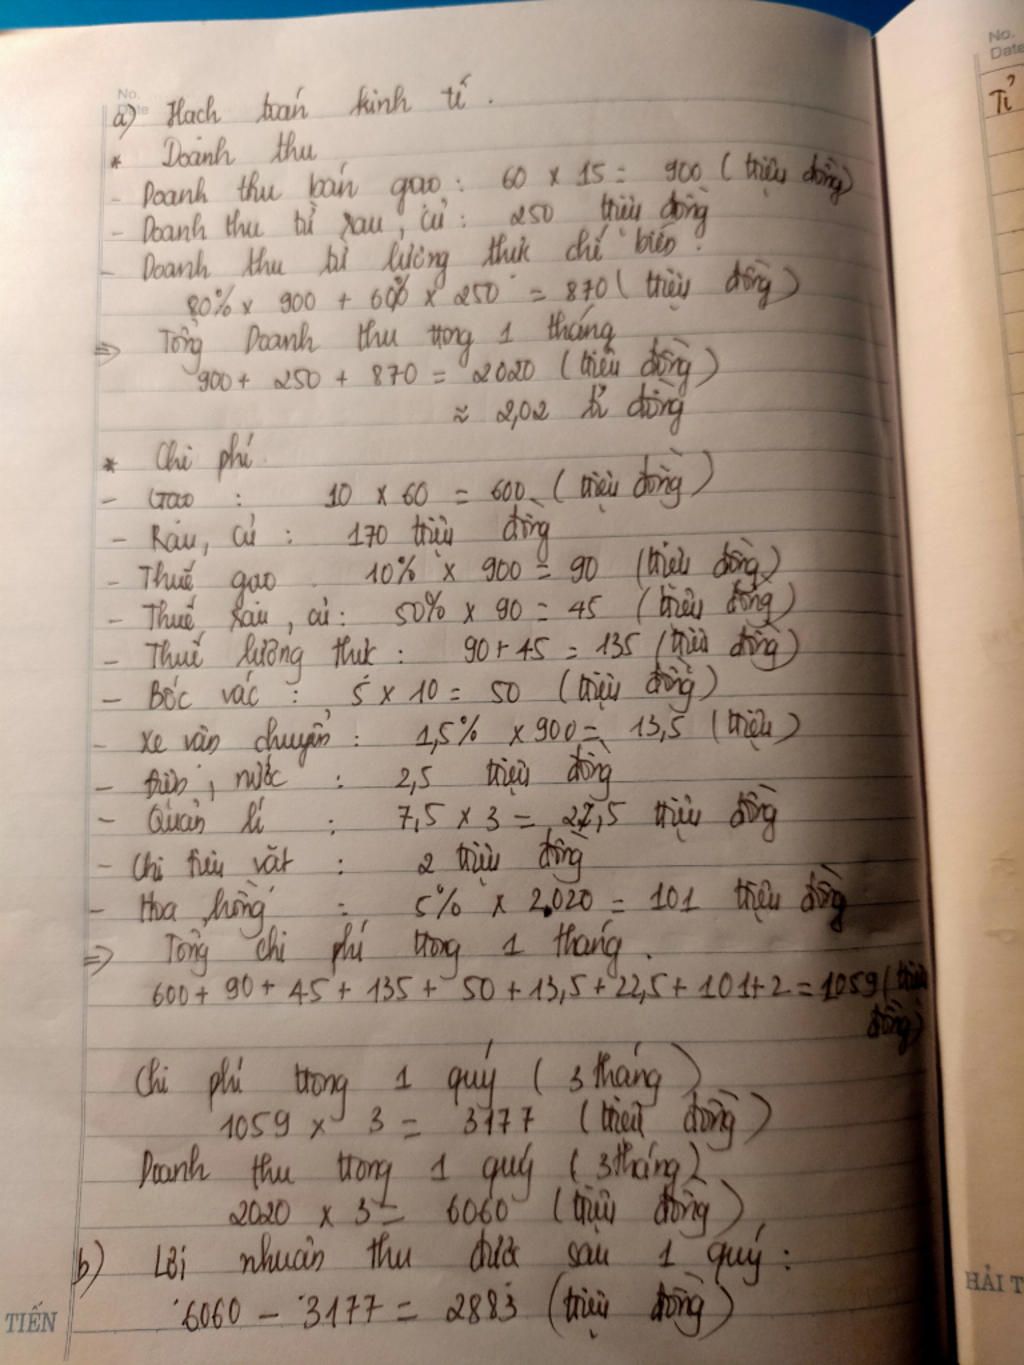 No.
Date
a) Hạch toán kinh tế.
* Doanh thu
- Doanh thu bán gạo: 60 x 15 = 900 (triệu đồng)
- Doanh thu từ rau, củ: 250 triệu đồng
- Doanh thu từ lương thực chế biến:
80% x 900 + 60% x 250 = 870 (triệu đồng)
=> Tổng Doanh thu trong 1 tháng
900 + 250 + 870 = 2020 (triệu đồng)
≈ 2,02 tỉ đồng
* Chi phí
- Gạo : 10 x 60 = 600 (triệu đồng)
- Rau, củ : 170 triệu đồng
- Thuế gạo 10% x 900 = 90 (triệu đồng)
- Thuế rau, củ: 50% x 90 = 45 (triệu đồng)
- Thuế lương thực : 90 + 45 = 135 (triệu đồng)
- Bốc vác : 5 x 10 = 50 (triệu đồng)
- Xe vận chuyển : 1,5% x 900 = 13,5 (triệu)
- Điện, nước : 2,5 triệu đồng
- Quản lí : 7,5 x 3 = 22,5 triệu đồng
- Chi tiêu vặt : 2 triệu đồng
- Hoa hồng : 5% x 2.020 = 101 triệu đồng
=> Tổng chi phí trong 1 tháng.
600 + 90 + 45 + 135 + 50 + 13,5 + 22,5 + 101 + 2 = 1059 (triệu
đồng)
Chi phí trong 1 quý (3 tháng)
1059 x 3 = 3177 (triệu đồng)
Doanh thu trong 1 quý (3 tháng)
2020 x 3 = 6060 (triệu đồng)
b) Lợi nhuận thu được sau 1 quý:
6060 - 3177 = 2883 (triệu đồng)
TIẾN
No.
Date
Tỉ
HẢI T